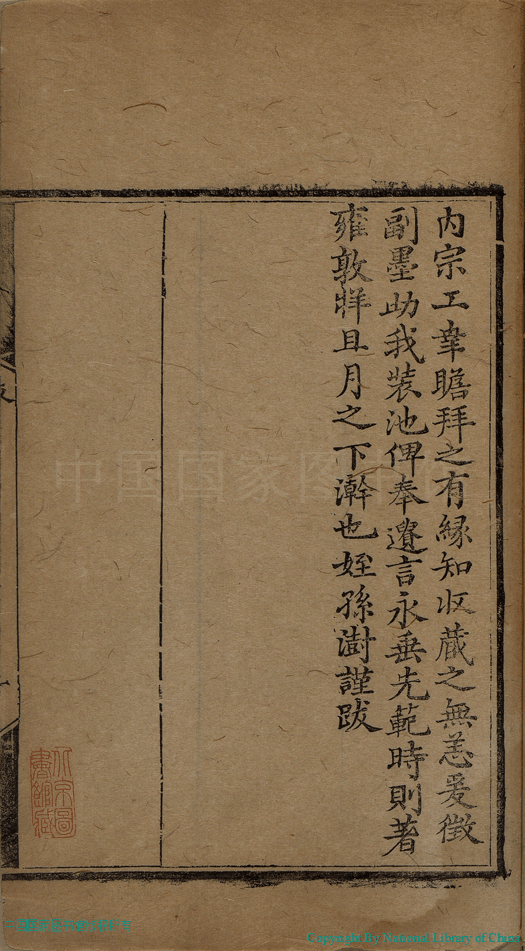 内宗工幸瞻拜之有緣知收藏之無恙爰徵
副墨助我装池俾奉遺言永垂先範時則著
雍敦牂且月之下澣也姪孫澍謹跋
中国国家图
北京圖書館藏
Copyright By National Library of China